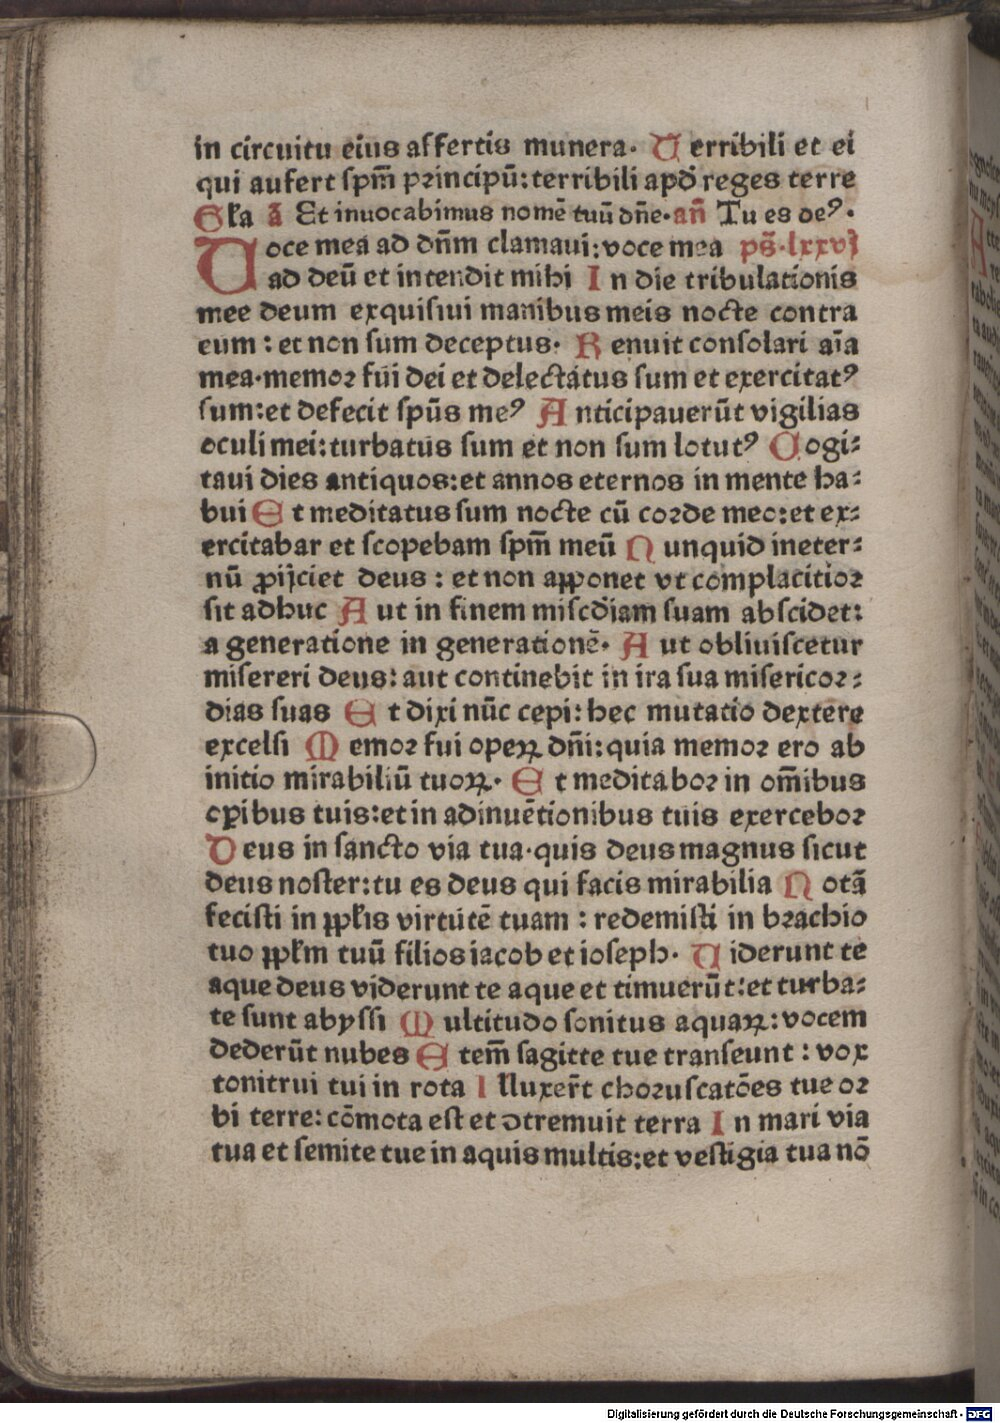 in circuitu eius affertis munera. Terribili et ei
qui aufert spm̄ principū: terribili apd̄ reges terre
Gła ā Et inuocabimus nomē tuū dn̄e. an̄ Tu es deꝰ.
Uoce mea ad dn̄m clamaui: voce mea ps̄. lxxvj
ad deū et intendit mihi In die tribulationis
mee deum exquisiui manibus meis nocte contra
eum: et non sum deceptus. Renuit consolari aīa
mea. memor fui dei et delectatus sum et exercitatꝰ
sum: et defecit spūs meꝰ Anticipauerūt vigilias
oculi mei: turbatus sum et non sum locutꝰ Cogi-
taui dies antiquos: et annos eternos in mente ha-
bui Et meditatus sum nocte cū corde meo: et ex-
ercitabar et scopebam spm̄ meū Nunquid in eter-
nū ꝓijciet deus: et non apponet vt complacitior
sit adhuc Aut in finem misc̄diam suam abscidet:
a generatione in generationē. Aut obliuiscetur
misereri deus: aut continebit in ira sua misericor-
dias suas Et dixi nūc cepi: hec mutatio dextere
excelsi Memor fui operꝝ dn̄i: quia memor ero ab
initio mirabiliū tuoꝝ. Et meditabor in om̄ibus
oꝑibus tuis: et in adinuētionibus tuis exercebor
Deus in sancto via tua. quis deus magnus sicut
deus noster: tu es deus qui facis mirabilia Notā
fecisti in ppłis virtutē tuam: redemisti in brachio
tuo ppłm tuū filios iacob et ioseph. Uiderunt te
aque deus viderunt te aque et timuerūt: et turba-
te sunt abyssi Multitudo sonitus aquaꝝ: vocem
dederūt nubes Etem̄ sagitte tue transeunt: vox
tonitrui tui in rota Illuxer̄t choruscatōes tue or
bi terre: cōmota est et ↄtremuit terra In mari via
tua et semite tue in aquis multis: et vestigia tua nō
Digitalisierung gefördert durch die Deutsche Forschungsgemeinschaft - DFG